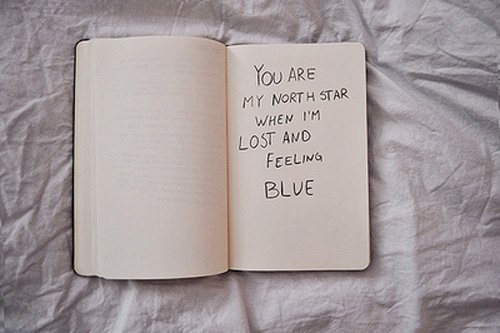 YOU ARE
MY NORTH STAR
WHEN I'M
LOST AND
FEELING
BLUE